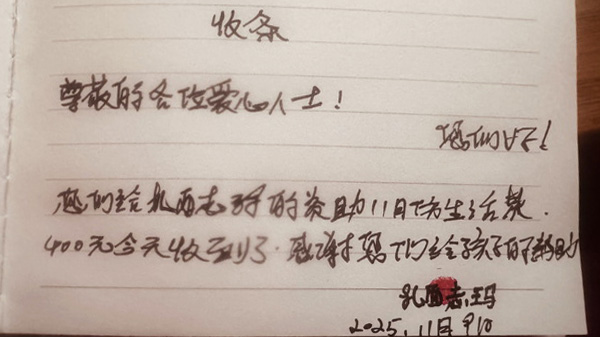 收条
尊敬的各位爱心人士！
您们好！
您们给扎西志玛的资助11月份生活费.
400元今天收到了.感谢您们给孩子的帮助
扎西志玛
2025.11月10